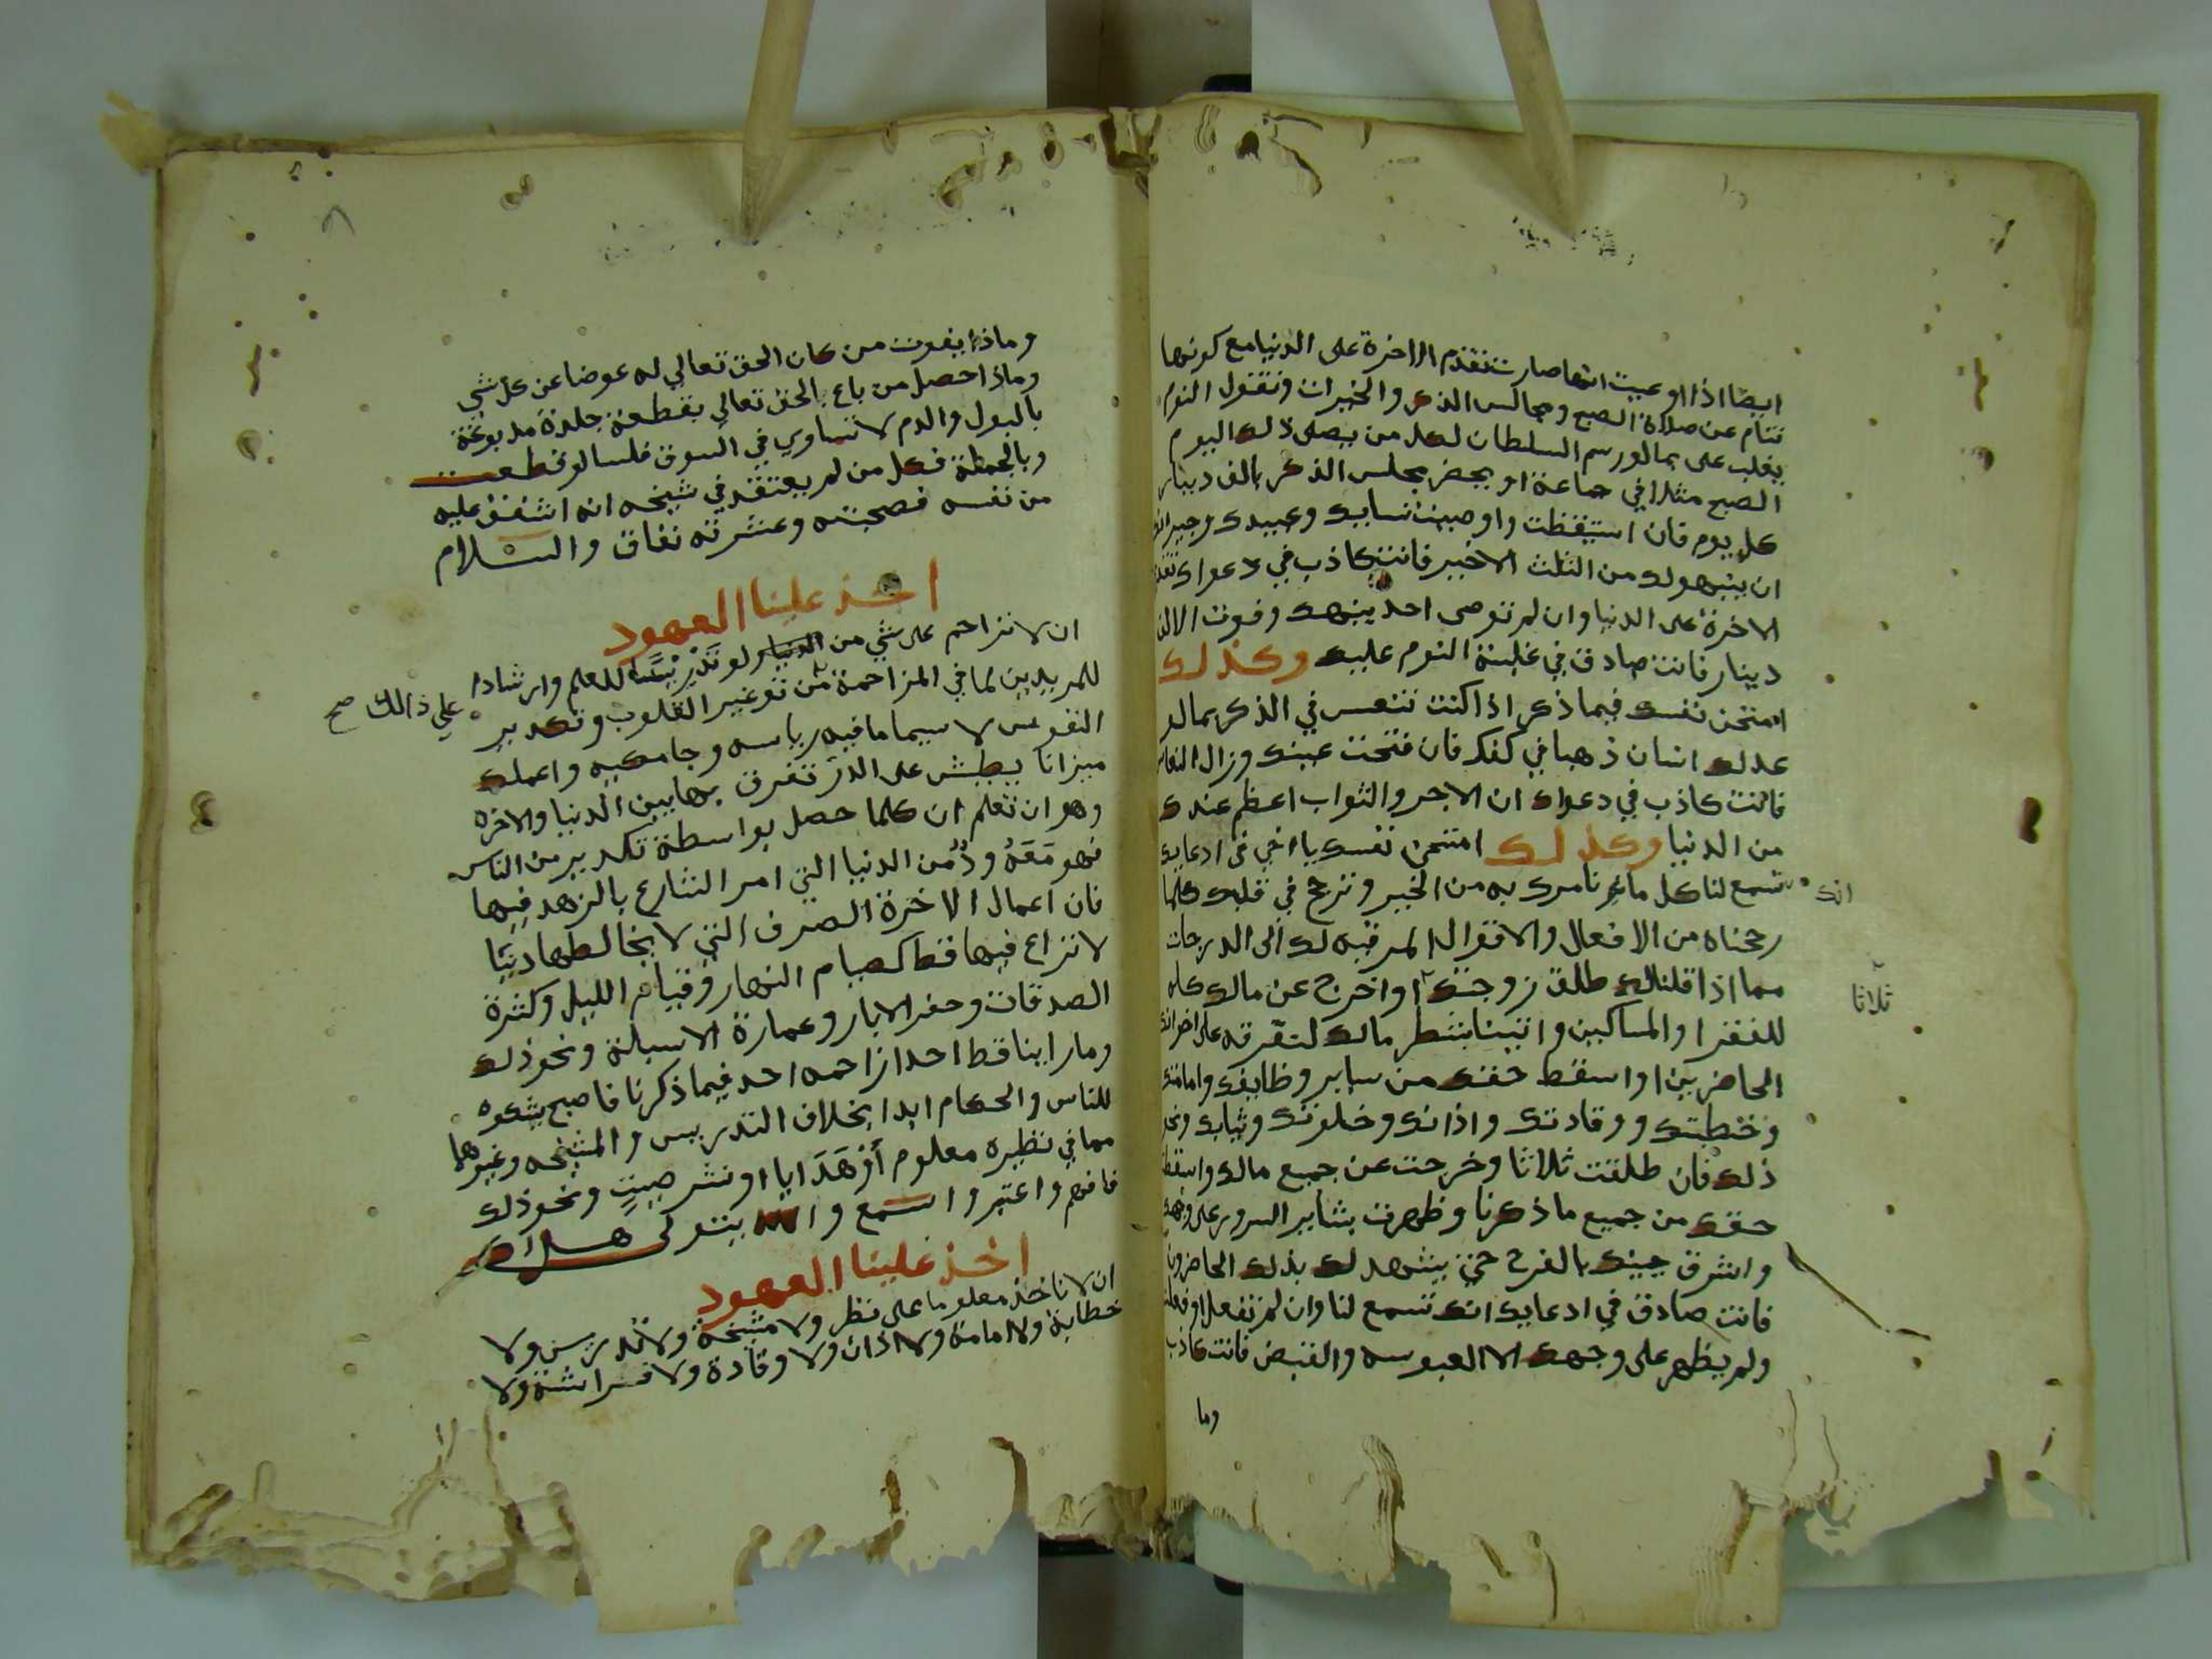 ايضا اذا اوعيت انها صارت تقدم الاخرة على الدنيا مع كونها
تنام عن صلاة الصبح ومجالس الذكر والخيرات وتقول النوم
يغلب على بما لو رسم السلطان لكل من يصلى ذلك اليوم
الصبح مثلا في جماعة او يحضر مجلس الذكر بالف دينار
كل يوم فان استيقظت واوصيت نسايك وعبيدك وجيرانك
ان ينبهوك من الثلث الاخير فانت كاذب في دعواك تقدم
الاخرة على الدنيا وان لم توصى احد ينبهك وفوت الالف
دينار فانت صادق في غلبة النوم عليك وكذلك
امتحن نفسك فيما ذكر اذا كنت تنعس في الذكر بما لو
عد لك انسان ذهبا في كفك فان فتحت عينك وزال النعاس
فانت كاذب في دعواك ان الاجر والثواب اعظم عندك
من الدنيا وكذلك امتحن نفسك يا اخي في ادعايك
انك تسمع لنا كل ما نامرك به من الخير وترجح في قلبك كلما
رجحناه من الافعال والاقوال المرقيه لك الى الدرجات
مما اذا قلنا لك طلق زوجتك ثلاثا او اخرج عن مالك كله
للفقرا والمساكين واتينا بشطر مالك لنفرقه على اخوانك
الحاضرين او اسقط حقك من ساير وظايفك وامامتك
وخطبتك ووقادتك واذانك وخلوتك وثيابك ونحو
ذلك فان طلقت ثلاثا وخرجت عن جميع مالك واسقطت
حقك من جميع ما ذكرنا وظهرت بشاير السرور على وجهك
واشرق جبينك بالفرح حتى يشهد لك بذلك الحاضرون
فانت صادق في ادعايك انك تسمع لنا وان لم تفعل او فعلت
ولم يظهر على وجهك الا العبوسه والقبض فانت كاذب
وما
٨
وماذا يفوت من كان الحق تعالي له عوضا عن كل شي
وماذا حصل من باع بالحق تعالي بقطعة جلدة مدبوغة
بالبول والدم لا تساوي في السوق فلسا لو قطعت
وبالجملة فكل من لم يعتقد في شيخه انه اشفق عليه
من نفسه فصحبته وعشرته نفاق والسلام
اخذ علينا العهود
ان لا نزاحم على شي من الدنيا ولو تدريسا للعلم وارشادا
للمريدين لما في المزاحمة على ذالك صح من توغير القلوب وتكدير
النفوس لا سيما ما فيه رياسه وجامكيه واعملك
ميزانا يطيش على الذر تفرق بها بين الدنيا والاخره
وهو ان تعلم ان كلما حصل بواسطة تكدير من الناس
فهو معدود من الدنيا التي امر الشارع بالزهد فيها
فان اعمال الاخرة الصرف التي لا يخالطها دنيا
لا نزاع فيها قط كصيام النهار وقيام الليل وكثرة
الصدقات وحفر الابار وعمارة الاسبلة ونحو ذلك
وما راينا قط احدا زاحمه احد فيما ذكرنا فاصبح يشكوه
للناس والحكام ابدا بخلاف التدريس والمشيخه وغيرها
مما في نظيره معلوم أو هدايا او نشر صيت ونحو ذلك
فافهم واعتبر واسمع والله يتولى هداك
اخذ علينا العهود
ان لا ناخذ معلوما على نظر ولا مشيخة ولا تدريس ولا
خطابة ولا امامة ولا اذان ولا وقادة ولا فراشة ولا